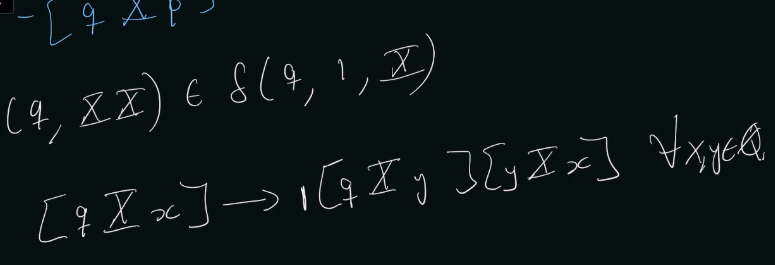 - [q X p]
(q, XX) ∈ δ(q, 1, X)
[q X x] → 1[q X y][y X x] ∀x,y∈Q